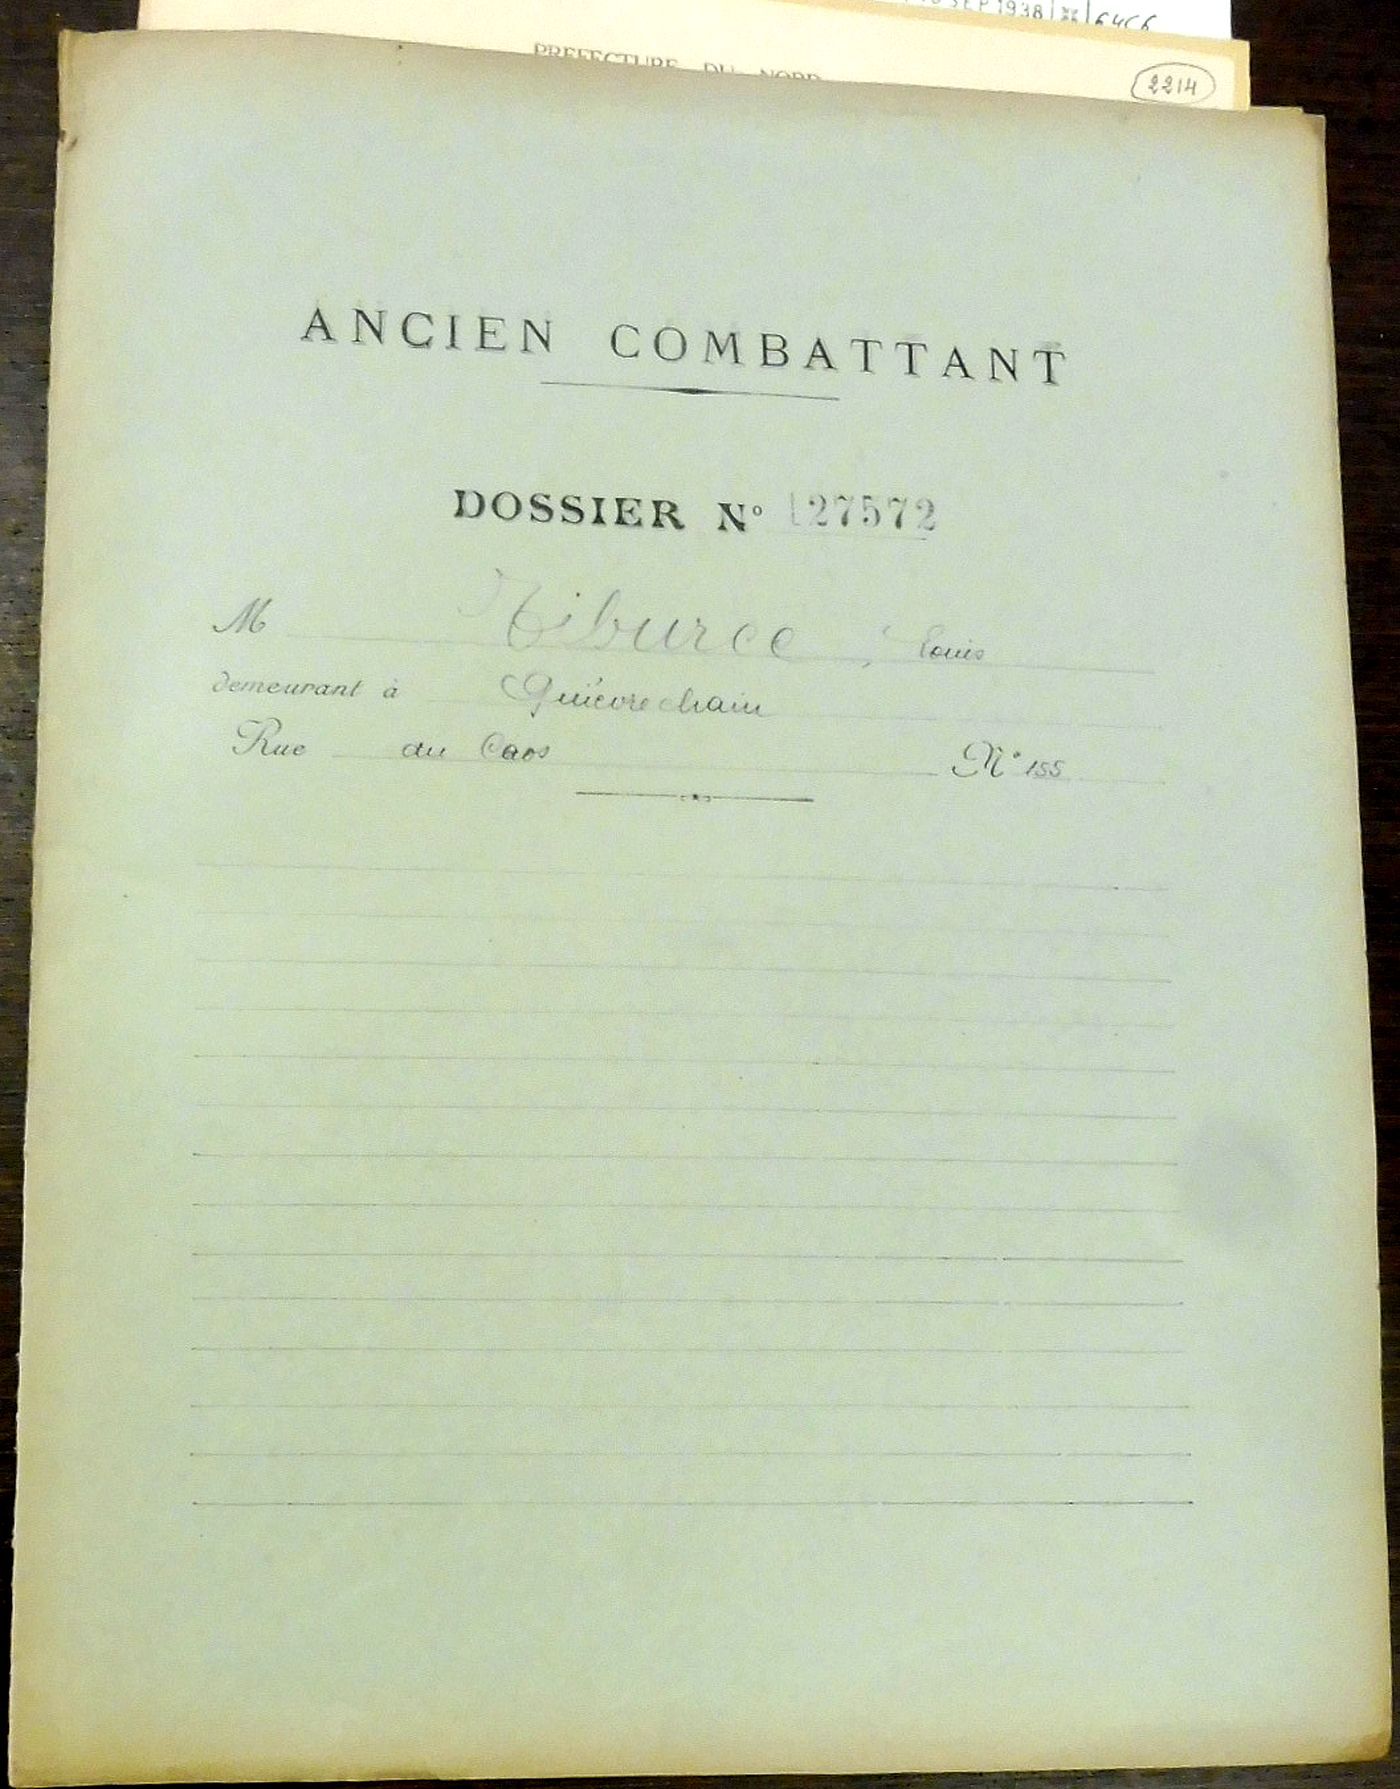 SEP 1938 6466
PREFECTURE DU NORD
2214
ANCIEN COMBATTANT
DOSSIER N° 127572
M Tiburce, Louis
demeurant à Quiévrechain
Rue du Caos N° 155